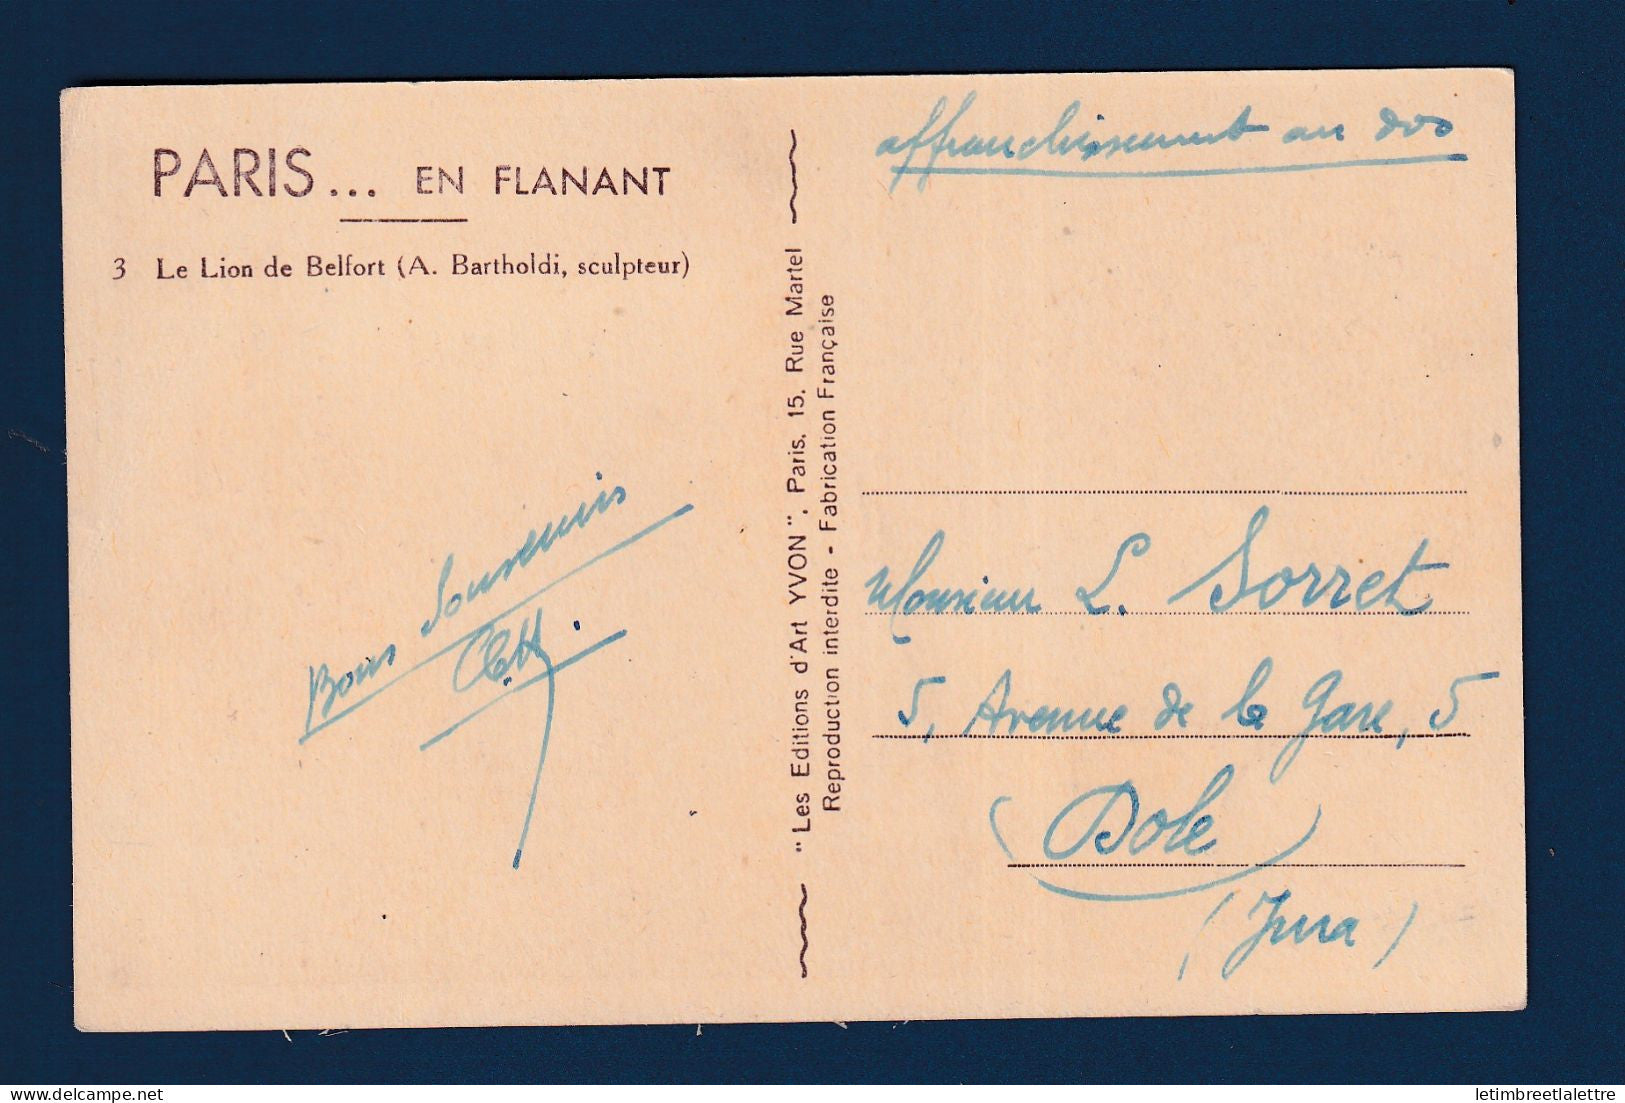 PARIS... EN FLANANT
3 Le Lion de Belfort (A. Bartholdi, sculpteur)
Bons Souvenirs
"Les Editions d'Art YVON", Paris, 15, Rue Martel
Reproduction interdite - Fabrication Française
affranchissement au dos
Monsieur L. Sorret
5, Avenue de la Gare, 5
(Dole)
(Jura)
letimbreetlalettre